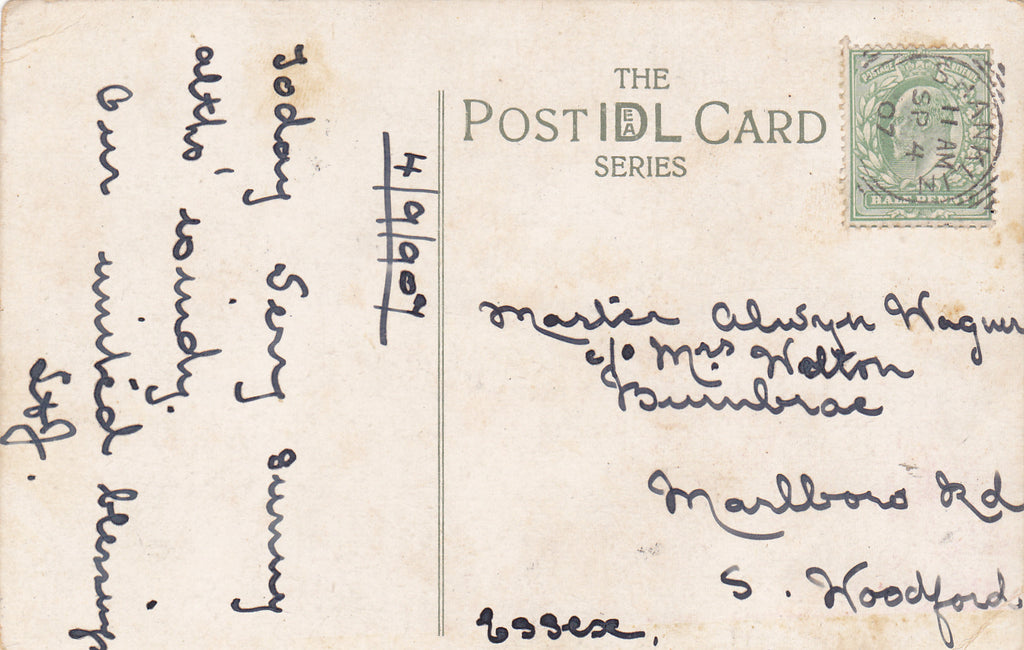 4/9/07
Today very sunny
altho' windy.
Our united blessings
THE
POST IDEAL CARD
SERIES
POSTAGE
HALFPENNY
11 AM
SP 4
07
Master Alwyn Wagner
c/o Mrs Welton
Burnbrae
Marlboro Rd
S. Woodford.
Essex.